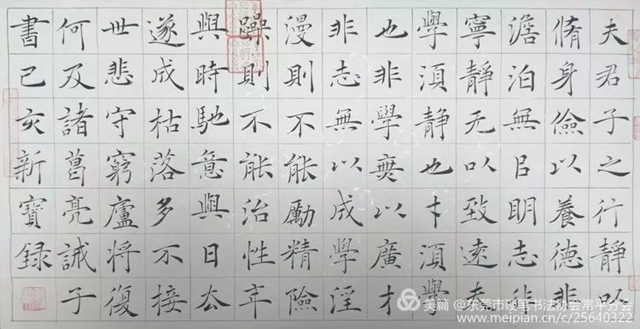 夫君子之行靜以
脩身儉以養德非
澹泊無㠯明志非
寧靜无以致遠夫
學湏靜也才湏學
也非學無以廣才
非志無以成學淫
漫則不能勵精險
躁則不能治性年
與時馳意與日去
遂成枯落多不接
世悲守窮廬將復
何及諸葛亮誡子
書己亥新寶録
美篇 @东莞市硬笔书法协会常平分会
www.meipian.cn/c/25640322